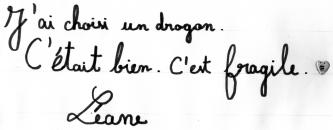 J'ai choisi un dragon.
C'était bien. C'est fragile.
Léane